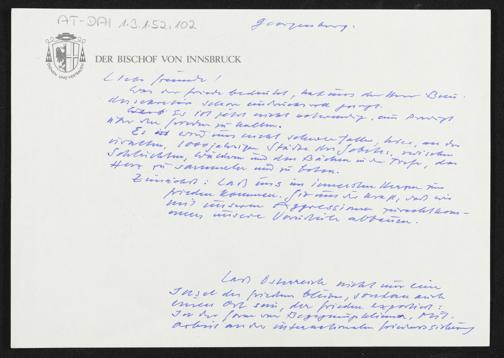 AT-DAI 1.3.1.52.102
Georgenberg.
DER BISCHOF VON INNSBRUCK
Liebe Freunde!
Was der Friede bedeutet, hat uns der Herr
schon eindrucksvoll gesagt.
Es ist jetzt nicht notwendig, eine Predigt
über den Frieden zu halten.
Es wird uns nicht schwer fallen, hier, an der
uralten, 1000jährigen Stätte des Gebets, zwischen
Schluchten, Wäldern und den Bächen in der Tiefe, das
Herz zu sammeln und zu beten.
Zunächst: Laß uns im innersten Herzen zum
Frieden kommen. Gib uns die Kraft, daß wir
mit unseren Aggressionen zurechtkom-
men unsere Vorurteile abbauen.
Laß Österreich nicht nur eine
Insel des Friedens bleiben, sondern auch
einen Ort sein, der Frieden exportiert:
In der Form von Begegnungsklima, Mit-
arbeit an der internationalen Friedenssicherung